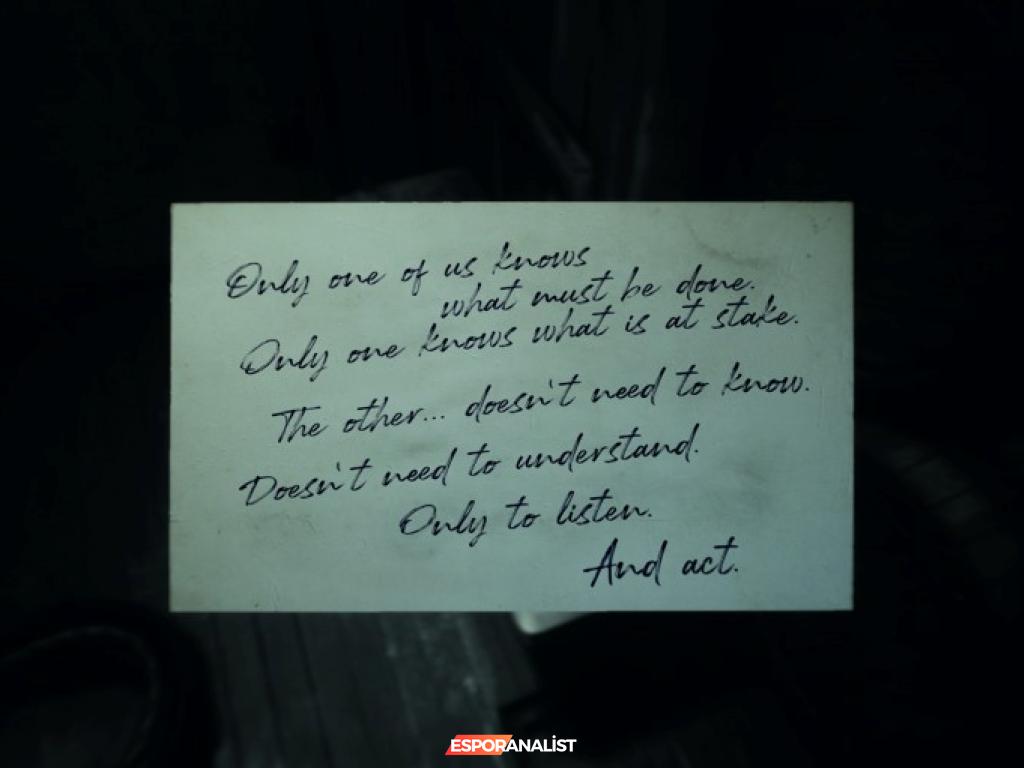 Only one of us knows
what must be done.
Only one knows what is at stake.
The other... doesn't need to know.
Doesn't need to understand.
Only to listen.
And act.
ESPORANALİST